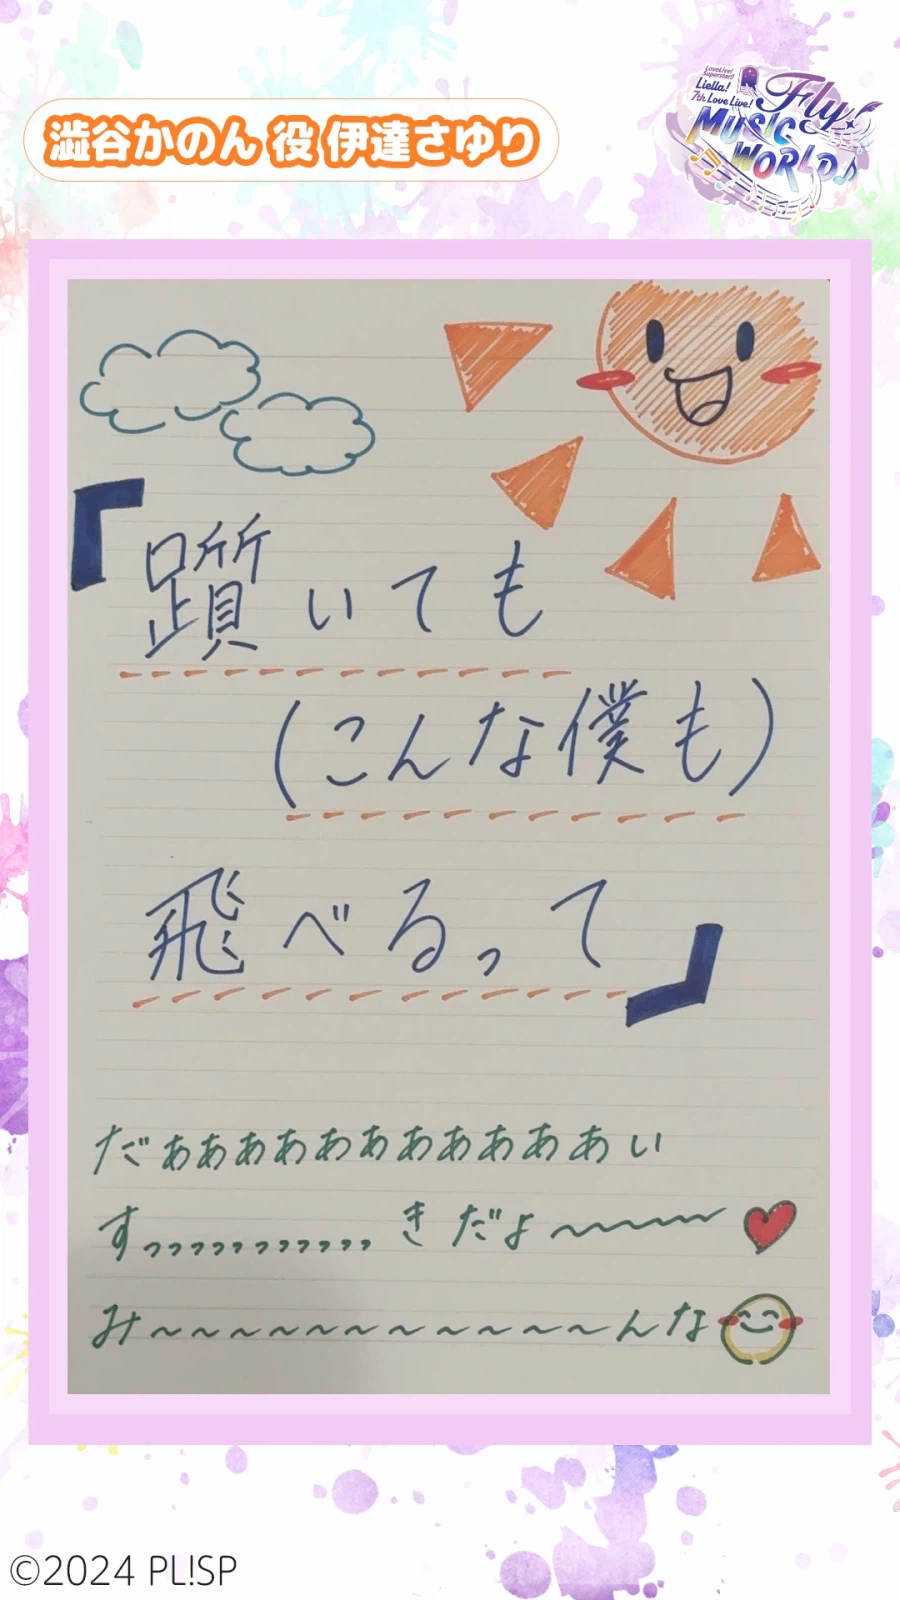 澁谷かのん 役 伊達さゆり
LoveLive! Superstar!!
Liella!
7th Love Live!
Fly!
MUSIC
WORLD♪
『躓いても
(こんな僕も)
飛べるって』
だぁぁぁぁぁぁぁぁぁぁぁい
すっっっっっっっっっっっきだよ〜〜〜〜♥
み〜〜〜〜〜〜〜〜〜〜〜〜んな
©2024 PL!SP